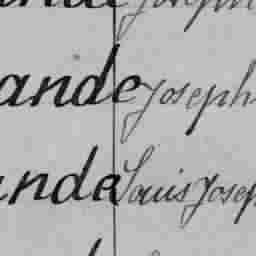 ande Joseph
ande Joseph
ande Louis Josep